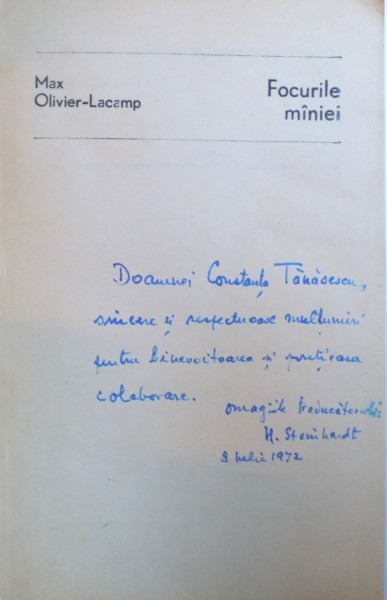 Max
Olivier-Lacamp
Focurile
mîniei
Doamnei Constanța Tănăsescu,
sincere și respectuoase mulțumiri
pentru binevoitoarea și prețioasa
colaborare.
omagiile traducătorului
N. Steinhardt
8 iulie 1972